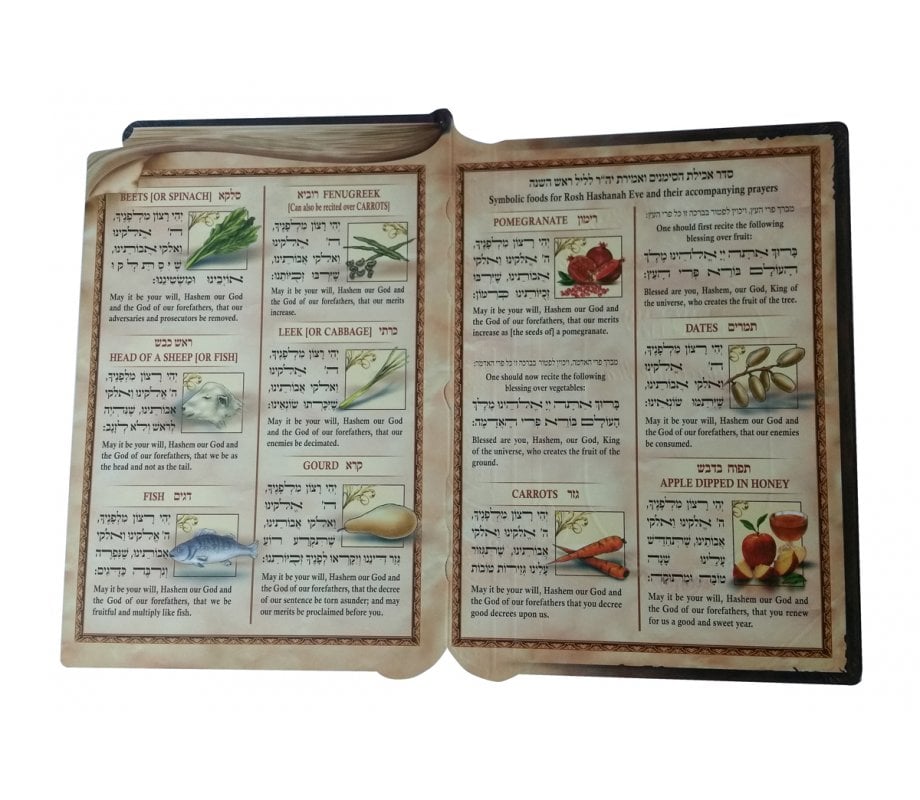 סדר אכילת הסימנים ואמירת יה"ר לליל ראש השנה
Symbolic foods for Rosh Hashanah Eve and their accompanying prayers
מברך פרי העץ, ויכוין לפטור בברכה זו כל פרי העץ:
One should first recite the following
blessing over fruit:
ברוך אתה יי אלהינו מלך
העולם בורא פרי העץ:
Blessed are you, Hashem, our God, King of
the universe, who creates the fruit of the tree.
DATES תמרים
יהי רצון מלפניך,
ה' אלקינו ואלקי
אבותינו,
שיתמו שונאינו:
May it be your will, Hashem our God and
the God of our forefathers, that our enemies
be consumed.
תפוח בדבש
APPLE DIPPED IN HONEY
יהי רצון מלפניך,
ה' אלקינו ואלקי
אבותינו, שתחדש
עלינו שנה
טובה ומתוקה:
May it be your will, Hashem our God and
the God of our forefathers, that you renew
for us a good and sweet year.
POMEGRANATE רימון
יהי רצון מלפניך,
ה' אלקינו ואלקי
אבותינו, שירבו
זכיותינו כרמון:
May it be your will, Hashem our God and
the God of our forefathers, that our merits
increase as [the seeds of] a pomegranate.
מברך פרי האדמה, ויכוין לפטור בברכה זו כל פרי האדמה:
One should now recite the following
blessing over vegetables:
ברוך אתה יי אלהינו מלך
העולם בורא פרי האדמה:
Blessed are you, Hashem, our God, King
of the universe, who creates the fruit of the
ground.
CARROTS גזר
יהי רצון מלפניך,
ה' אלקינו ואלקי
אבותינו, שתגזור
עלינו גזירות טובות
May it be your will, Hashem our God and
the God of our forefathers that you decree
good decrees upon us.
רוביא FENUGREEK
[Can also be recited over CARROTS]
יהי רצון מלפניך,
ה' אלקינו
ואלקי אבותינו,
שירבו זכיותינו:
May it be your will, Hashem our God and
the God of our forefathers, that our merits
increase.
LEEK [OR CABBAGE] כרתי
יהי רצון מלפניך,
ה' אלקינו
ואלקי אבותינו,
שיכרתו שונאינו:
May it be your will, Hashem our God
and the God of our forefathers, that our
enemies be decimated.
GOURD קרא
יהי רצון מלפניך,
ה' אלקינו
ואלקי אבותינו,
שתקרע רוע
גזר דיננו ויקראו לפניך זכיותינו:
May it be your will, Hashem our God and
the God of our forefathers, that the decree
of our sentence be torn asunder; and may
our merits be proclaimed before you.
BEETS [OR SPINACH] סלקא
יהי רצון מלפניך,
ה' אלקינו
ואלקי אבותינו,
שיסתלקו
אויבינו ומשטינינו:
May it be your will, Hashem our God
and the God of our forefathers, that our
adversaries and prosecutors be removed.
ראש כבש
HEAD OF A SHEEP [OR FISH]
יהי רצון מלפניך,
ה' אלקינו ואלקי
אבותינו, שנהיה
לראש ולא לזנב:
May it be your will, Hashem our God and
the God of our forefathers, that we be as
the head and not as the tail.
FISH דגים
יהי רצון מלפניך,
ה' אלקינו ואלקי
אבותינו, שנפרה
ונרבה כדגים:
May it be your will, Hashem our God and
the God of our forefathers, that we be
fruitful and multiply like fish.